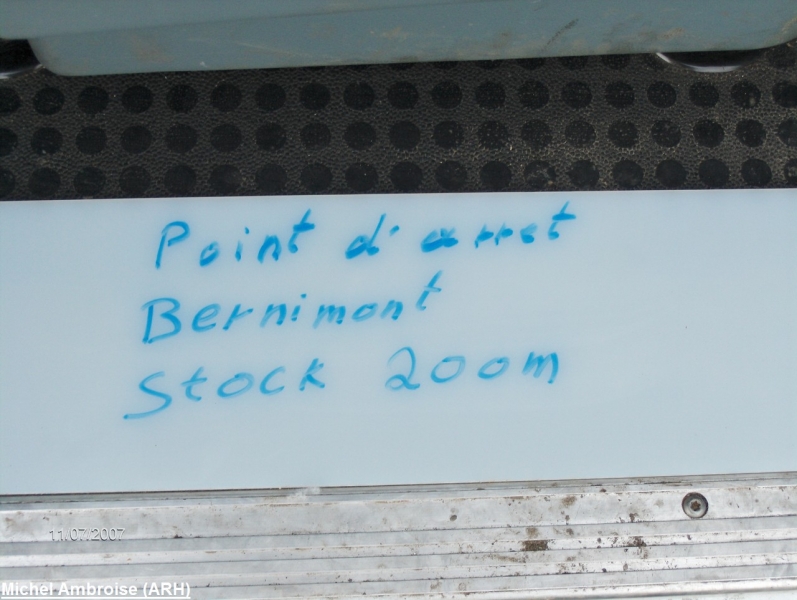 Point d'arret
Bernimont
Stock 200m
11.07/2007
Michel Ambroise (ARH)